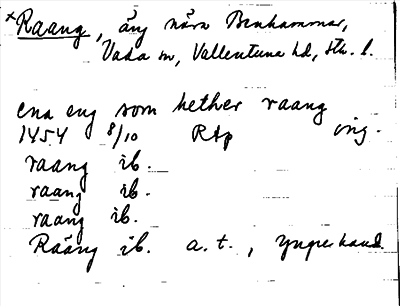 *Raang, äng nära Benhammar,
Vada sn, Vallentuna hd, Sth. l.
ena eng som hether raang
1454 8/10 RAp orig.
raang ib.
raang ib.
raang ib.
Raäng ib. a. t., yngre hand.